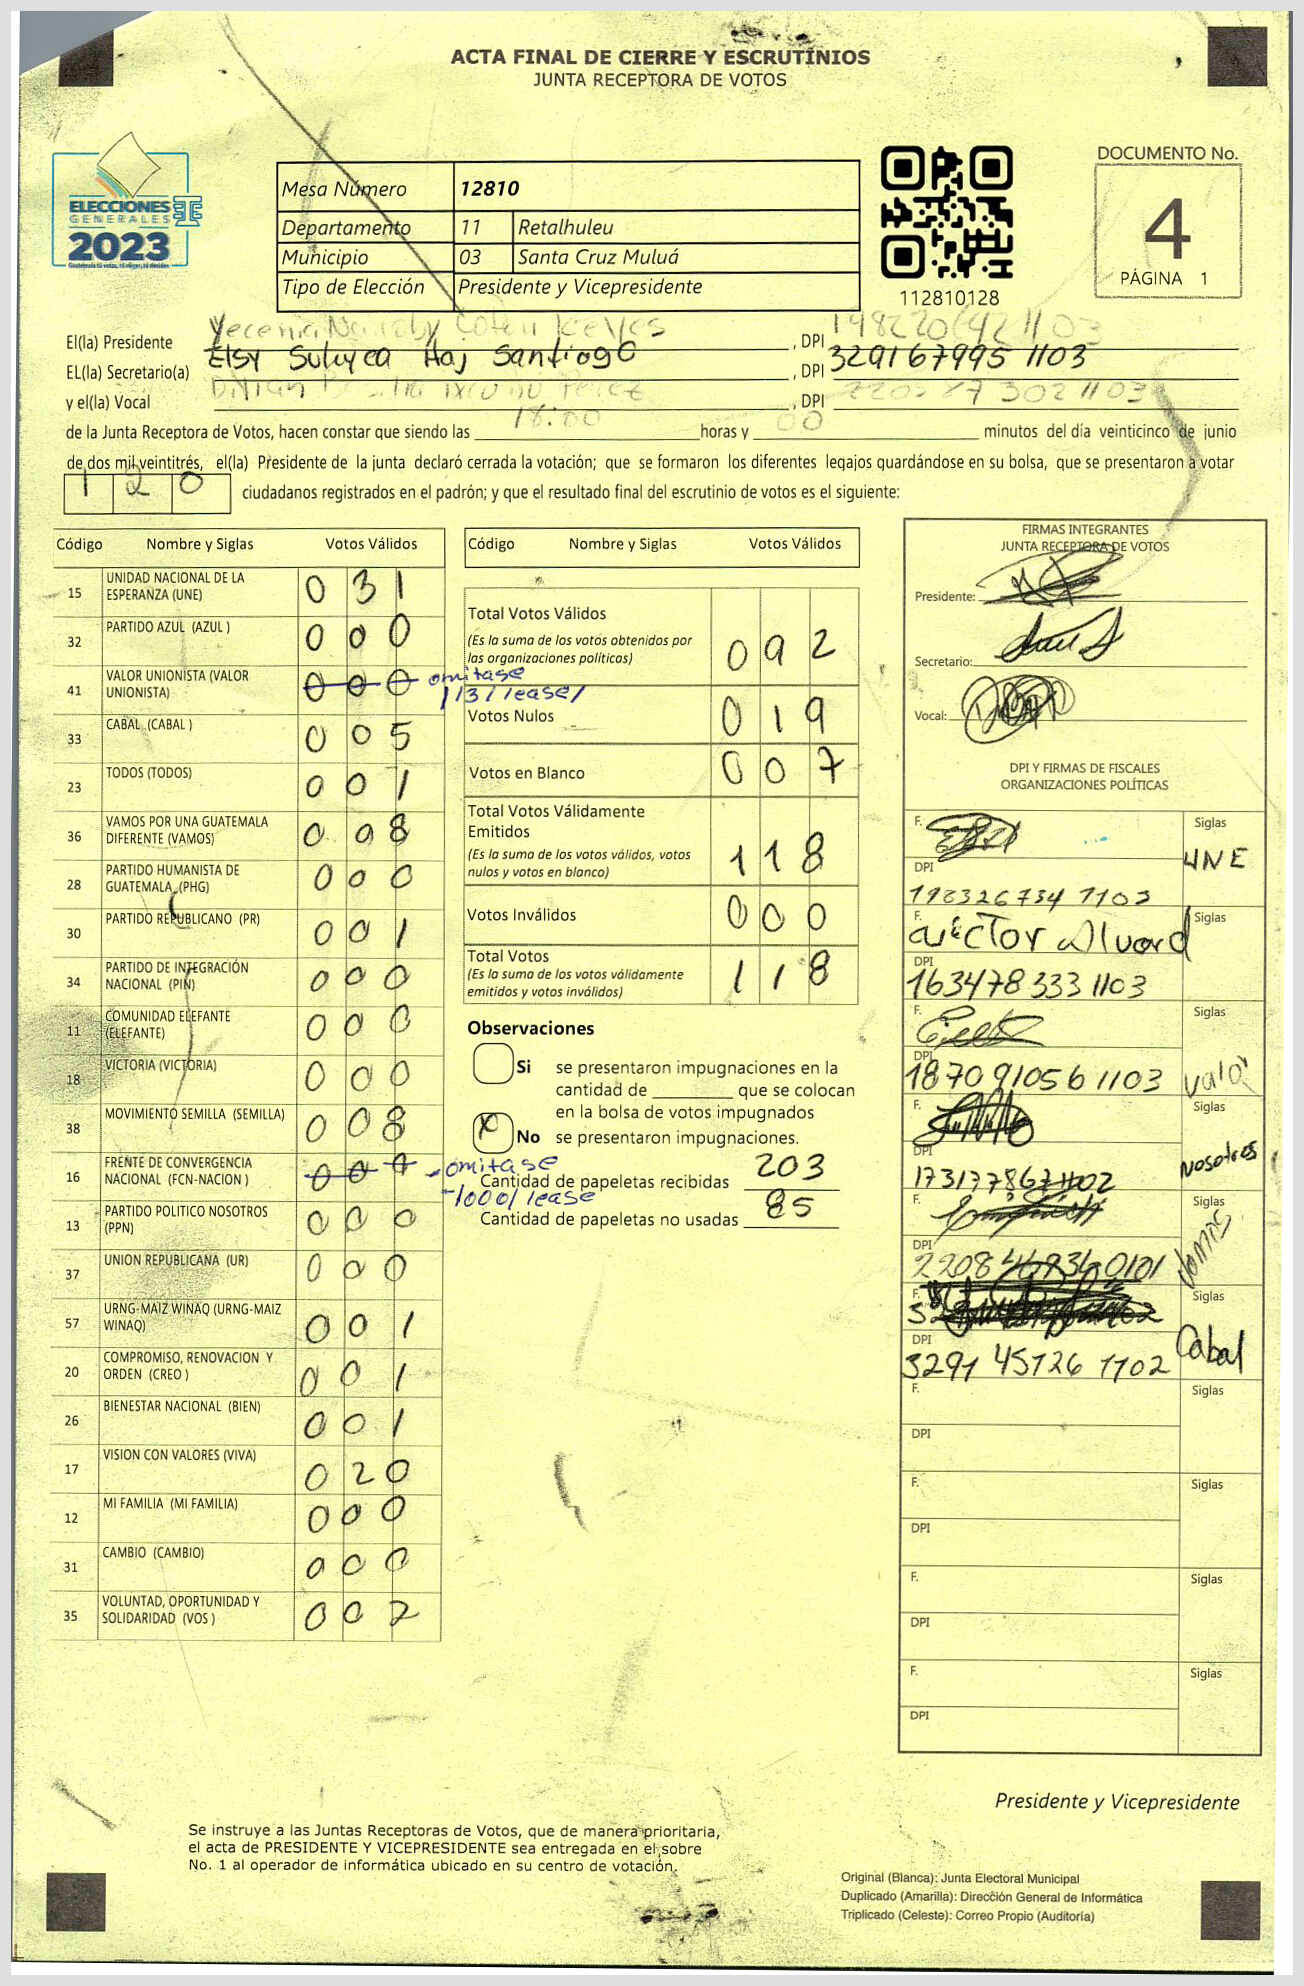 ACTA FINAL DE CIERRE Y ESCRUTINIOS
JUNTA RECEPTORA DE VOTOS
ELECCIONES
GENERALES
2023
Mesa Número 12810
Departamento 11 Retalhuleu
Municipio 03 Santa Cruz Muluá
Tipo de Elección Presidente y Vicepresidente
112810128
DOCUMENTO No.
4
PÁGINA 1
El(la) Presidente , DPI
EL(la) Secretario(a) Elsy Suluyea Haj Santiago , DPI 329167995 1103
y el(la) Vocal , DPI
de la Junta Receptora de Votos, hacen constar que siendo las 18:00 horas y 00 minutos del día veinticinco de junio
de dos mil veintitrés, el(la) Presidente de la junta declaró cerrada la votación; que se formaron los diferentes legajos guardándose en su bolsa, que se presentaron a votar
120 ciudadanos registrados en el padrón; y que el resultado final del escrutinio de votos es el siguiente:
Código Nombre y Siglas Votos Válidos
15 UNIDAD NACIONAL DE LA ESPERANZA (UNE) 031
32 PARTIDO AZUL (AZUL ) 000
41 VALOR UNIONISTA (VALOR UNIONISTA) 000 omitase
/13/ lease/
33 CABAL (CABAL ) 005
23 TODOS (TODOS) 001
36 VAMOS POR UNA GUATEMALA DIFERENTE (VAMOS) 008
28 PARTIDO HUMANISTA DE GUATEMALA (PHG) 000
30 PARTIDO REPUBLICANO (PR) 001
34 PARTIDO DE INTEGRACIÓN NACIONAL (PIN) 000
11 COMUNIDAD ELEFANTE (ELEFANTE) 000
18 VICTORIA (VICTORIA) 000
38 MOVIMIENTO SEMILLA (SEMILLA) 008
16 FRENTE DE CONVERGENCIA NACIONAL (FCN-NACION ) 000 omitase
/000/ lease
13 PARTIDO POLITICO NOSOTROS (PPN) 000
37 UNION REPUBLICANA (UR) 000
57 URNG-MAIZ WINAQ (URNG-MAIZ WINAQ) 001
20 COMPROMISO, RENOVACION Y ORDEN (CREO ) 001
26 BIENESTAR NACIONAL (BIEN) 001
17 VISION CON VALORES (VIVA) 020
12 MI FAMILIA (MI FAMILIA) 000
31 CAMBIO (CAMBIO) 000
35 VOLUNTAD, OPORTUNIDAD Y SOLIDARIDAD (VOS ) 002
Código Nombre y Siglas Votos Válidos
Total Votos Válidos 092
(Es la suma de los votos obtenidos por
las organizaciones políticas)
Votos Nulos 019
Votos en Blanco 007
Total Votos Válidamente
Emitidos 118
(Es la suma de los votos válidos, votos
nulos y votos en blanco)
Votos Inválidos 000
Total Votos 118
(Es la suma de los votos válidamente
emitidos y votos inválidos)
Observaciones
Si se presentaron impugnaciones en la
cantidad de ________ que se colocan
en la bolsa de votos impugnados
X No se presentaron impugnaciones.
Cantidad de papeletas recibidas 203
Cantidad de papeletas no usadas 85
FIRMAS INTEGRANTES
JUNTA RECEPTORA DE VOTOS
Presidente:
Secretario:
Vocal:
DPI Y FIRMAS DE FISCALES
ORGANIZACIONES POLÍTICAS
F. Siglas
UNE
DPI
198326734 1103
F. Siglas
DPI
163478333 1103
F. Siglas
DPI
187091056 1103 Valor
F. Siglas
DPI Nosotros
173177867 1102
F. Siglas
DPI
220846836 0101
F. Siglas
DPI Cabal
3291 45726 1102
F. Siglas
DPI
F. Siglas
DPI
F. Siglas
DPI
F. Siglas
DPI
Presidente y Vicepresidente
Se instruye a las Juntas Receptoras de Votos, que de manera prioritaria,
el acta de PRESIDENTE Y VICEPRESIDENTE sea entregada en el sobre
No. 1 al operador de informática ubicado en su centro de votación.
Original (Blanca): Junta Electoral Municipal
Duplicado (Amarilla): Dirección General de Informática
Triplicado (Celeste): Correo Propio (Auditoría)